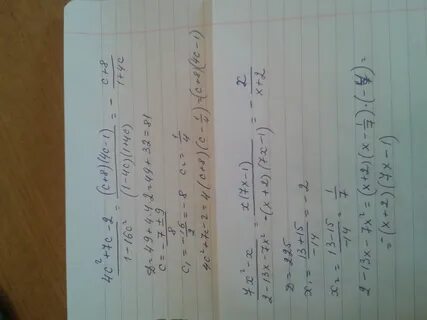 4c²+7c-2 / 1-16c² = (c+8)(4c-1) / (1-4c)(1+4c) = - c+8 / 1+4c
D=49+4·4·2=49+32=81
c = -7±9 / 8
c₁ = -16/2 = -8 c₂ = 1/4
4c²+7c-2=4(c+8)(c-1/4)=(c+8)(4c-1)
7x²-x / 2-13x-7x² = x(7x-1) / -(x+2)(7x-1) = - x / x+2
D=225
x₁ = 13+15 / -14 = -2
x₂ = 13-15 / -14 = 1/7
2-13x-7x²=(x+2)(x-1/7)·(-7)=
=(x+2)(7x-1)